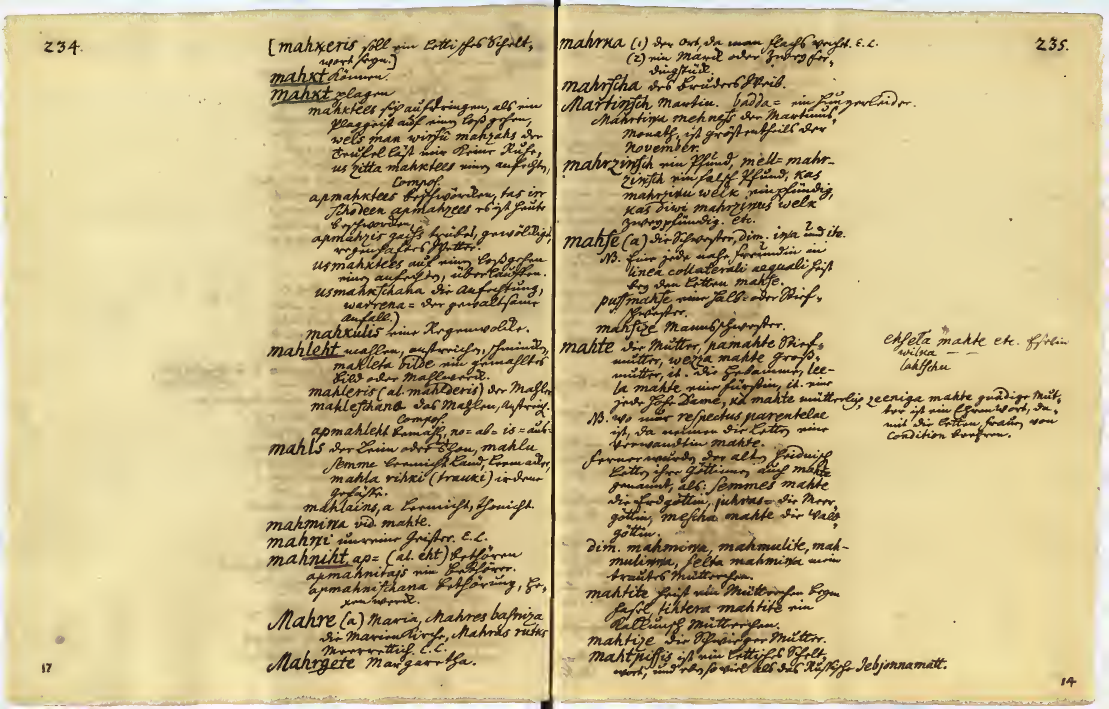 234.
[mahkeris soll ein Lettisches Schelt-
wort seyn.]
mahkt können.
mahkt plagen
mahktees sich aufdringen, als ein
Plaggeist auf einen loß gehen,
wels man winsü mahzahs der
Teufel läst mir keine Ruhe,
us zitta mahktees einen anfechten,
Compos.
apmahktees beschwörden, tas irr
schodeen apmahzees es ist heute
apmahzis gaiss trübes, gewölcktes,
regenhaftes Wetter.
usmahktees auf einen loßgehen
einen anfechten, überlauffen.
usmahkschana die Anfechtung,
warrena = der gewaltsame
Anfall.)
mahkulis eine Regenwolke.
mahleht mahlen, anstreichen, schminken,
mahleta bilde ein gemahltes
Bild oder Mahlwerck.
mahleris (al. mahlderis) der Mahler
mahleschana das Mahlen, Anstreich.
Compos.
apmahleht bemahl, no= ab= is= aus=
mahls der Leim oder Thon, mahlu
semme Leemicht Land, Leem acker,
mahla rihki (trauki) irdene
gefässe.
mahlains, a Leemicht, thonicht.
mahmina vid. mahte.
mahni unreine Geister. E.L.
mahniht ap= (al. eht) bethören
apmahnitajs ein Bethörer.
apmahnischana Bethörung, He-
xenwerck.
Mahre (a) Maria, Mahres basniza
die Marien Kirche, Mahrus rutks
Meerrettich. E.L.
Mahrgete Margaretha.
17
235.
mahrka (1) der Ort, da man flachs weicht. E.L.
(2) ein Marck oder Zwey fer-
dingstück.
mahrscha des Bruders Weib.
Martinsch Martin. badda= ein Hungerleider.
Mahrtina mehness der Martinus
Monath, ist gröstentheils der
November.
mahrzinsch ein Pfund, mell= mahr-
zinsch ein falsch Pfund, kas
mahrzinu welk einpfündig,
kas diwi mahrzinus welk
zweypfündig. etc.
mahse (a) die Schwester, dim. ina und ite.
NB. Eine jede nahe freundin in
linea collaterali aequali heist
bey den Letten mahse.
pussmahse eine Halb= oder Stief-
schwester.
mahsize Mannsschwester.
mahte die Mutter, pamahte Stief-
mutter, wezza mahte Groß-
mutter, it. die Hebamme, lee-
la mahte eine fürstin, it. eine
jede hohe Dame, ka mahte mütterlich, zeeniga mahte gnädige Mut-
ter ist ein Ehrenwort, da-
mit die Letten frauen von
Condition beehren.
ehsela mahte etc. Eselin
wilka — —
lahtschu
NB. wo nur respectus parentelae
ist, da nennen die Letten eine
Verwandtin mahte.
ferner wurden der alten heidnisch
Letten ihre Göttinnen auch mahte
genannt, als: semmes mahte
die Erdgöttin, juhras= die Meer
göttin, mescha mahte die Wald
göttin.
dim. mahmina, mahmulite, mah-
mulinna, selta mahmina mein
trautes Mütterchen.
mahtite heist ein Mütterchen beym
tihtera mahtite ein
Kalkunsch Mütterchen.
mahtize die Schwieger Mutter.
mahtpissis ist ein Lettisches Schelt-
wort, und eben so viel als das Russische Jebjonnamatt.
14